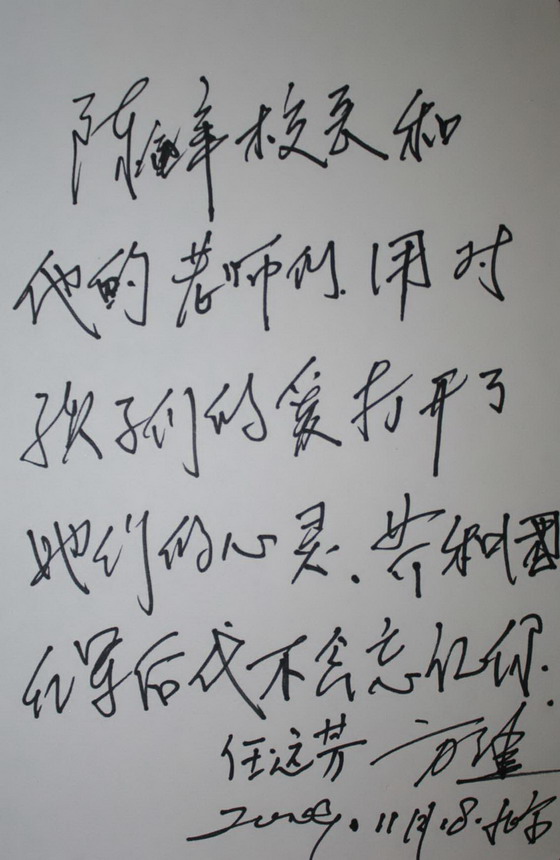 陈 校长和
他的老师们.用对
孩子们的爱打开了
她们的心灵.共和國
红军后代不会忘记你.
任远芳 方建
11月.8.北京